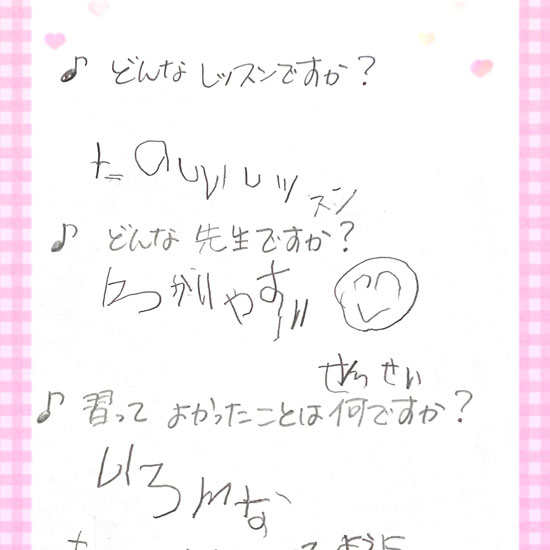 ♪ どんなレッスンですか?
たのしいレッ
スン
♪ どんな先生ですか?
わかりやすい
せんせい
♪ 習ってよかったことは何ですか?
いろんな
ように